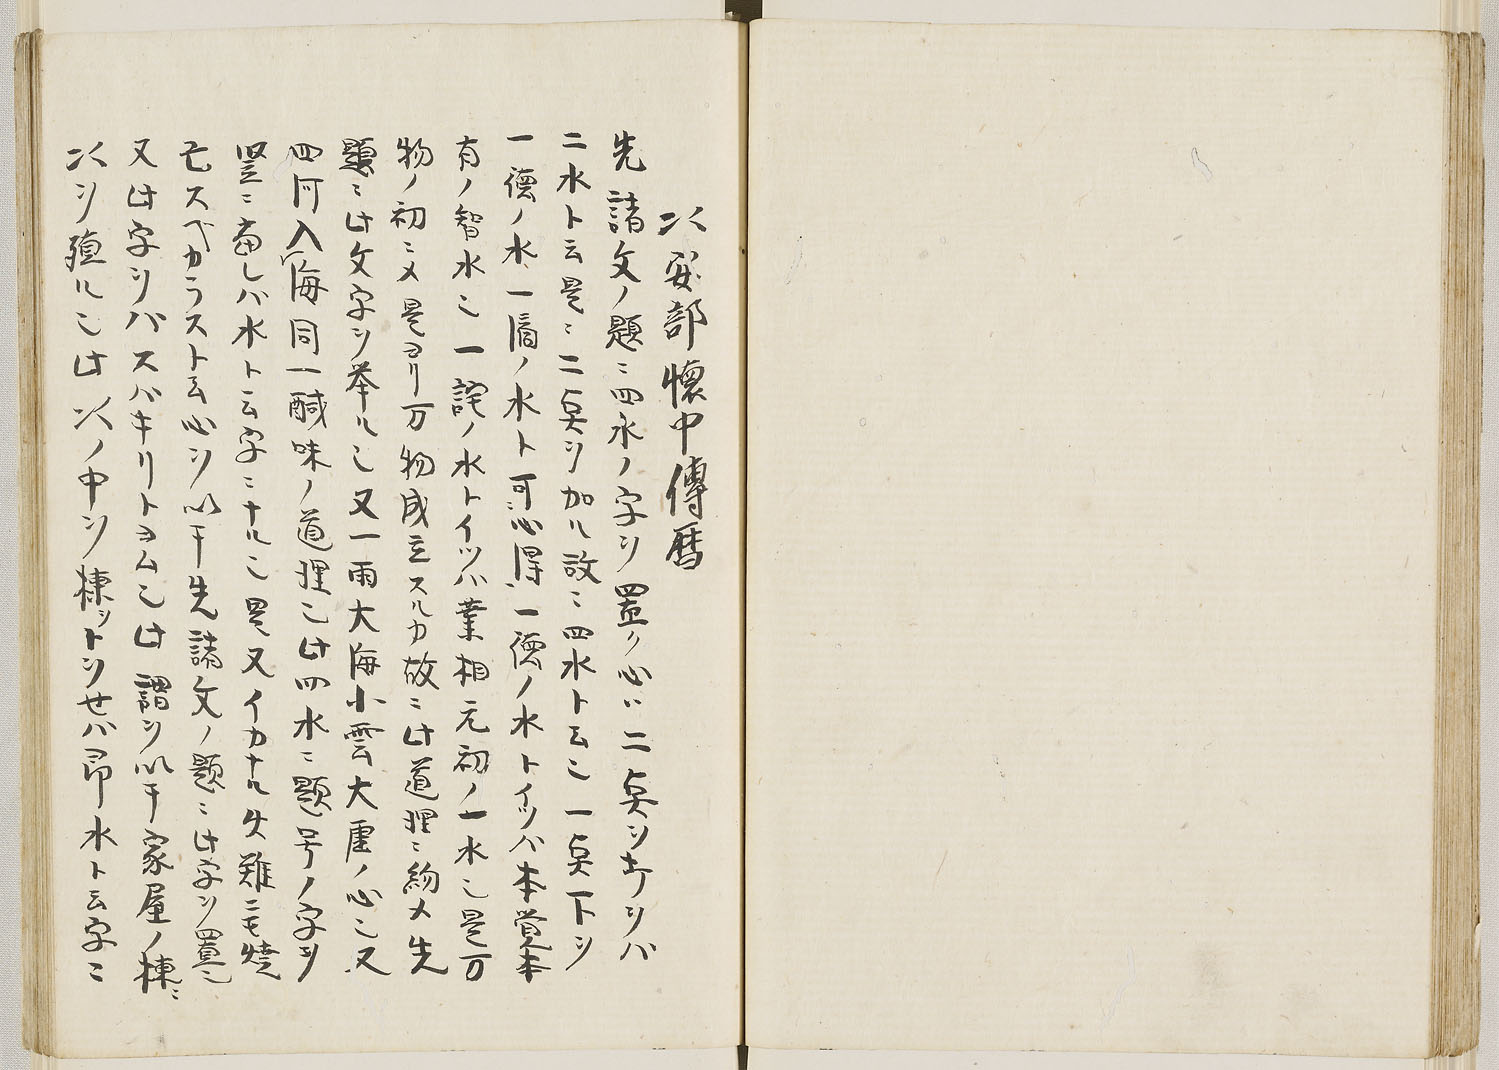 以安部懐中傳暦
先請文ノ題ニ四水ノ字ヲ置ク心ハ二点ヲ去ヲバ
二水ト云是ニ二点ヲ加ル故ニ四水ト云也一点下ヲ
一徳ノ水一滴ノ水ト可心得一徳ノ水トイツハ本覚本
有ノ智水也一詫ノ水トイツハ業相元初ノ一水也是万
物ノ初ニメ是ヨリ万物成立スルカ故ニ此道理ニ約メ先
題ニ此文字ヲ挙ル也又一雨大海小雲大虚ノ心也又
四河入海同一醎味ノ道理也此四水ニ題号ノ字ヲ
竪ニ畜レバ水ト云字ニナル也是又イカナル火難ニモ焼
亡スベカラスト云心ヲ以テ先請文ノ題ニ此字ヲ置也
又此字ヲバスバキリトヨム也此謂ヲ以テ家屋ノ棟ニ
以ヲ殖ル也此以ノ中ヲ棟ットヲセバ昴水ト云字ニ